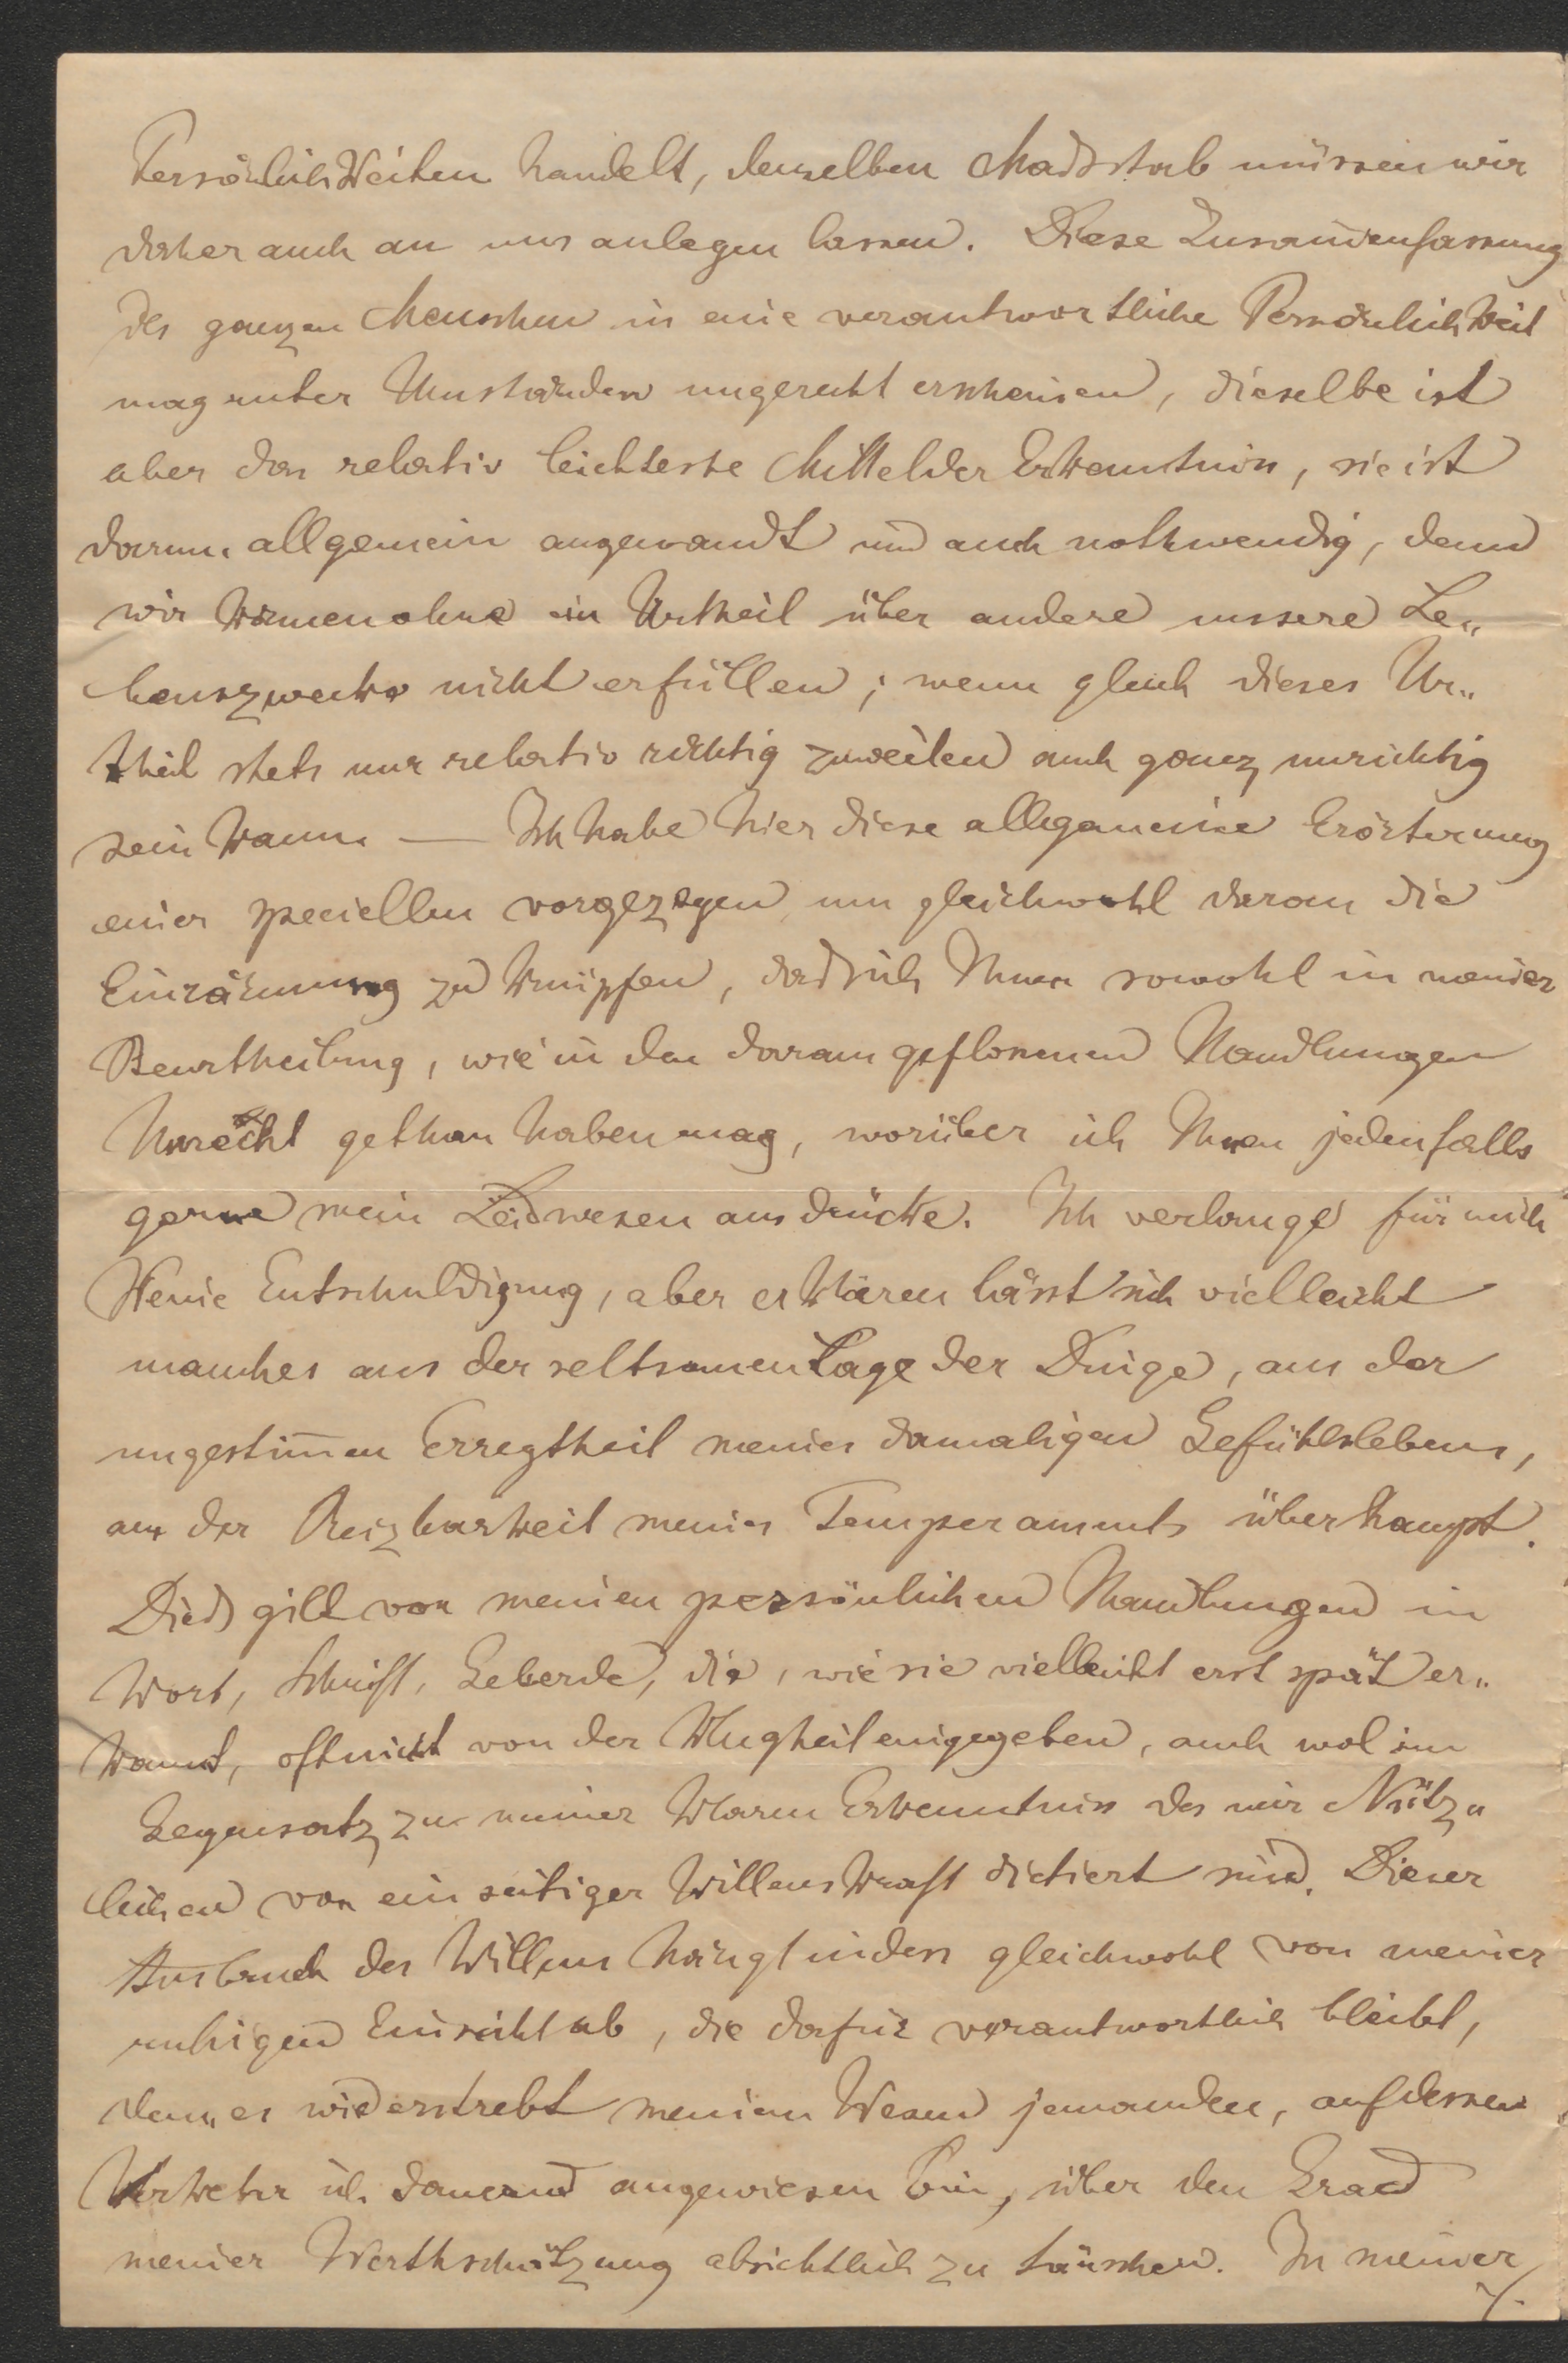 Persönlichkeiten handelt, denselben Maßstab müssen wir
daher auch an uns anlegen lassen. Diese Zusam̄enfassung
des ganzen Menschen in eine verantwortliche Persönlichkeit
mag unter Umständen ungerecht erscheinen, dieselbe ist
aber das relativ leichteste Mittel der Erkenntniss, sie ist
darum allgemein angewandt und auch nothwendig, denn
wir können ohne ein Urtheil über andere unsere Le„
benszwecke nicht erfüllen; wenn gleich dieses Ur„
theil stets nur relativ richtig zuweilen auch ganz unrichtig
sein kann. — Ich habe hier diese allegemeine Erörterung
einer speciellen vorgezogen, um gleichwohl daran die
Einräumung zu knüpfen, daß ich Ihnen sowohl in meiner
Beurtheilung, wie in den daraus geflossenen Handlungen
Unrecht gethan haben mag, worüber ich Ihnen jedenfalls
gerne mein Leidwesen ausdrücke. Ich verlange für mich
keine Entschuldigung, aber erklären lässt sich vielleicht
manches aus der seltsamen Lage der Dinge, aus der
ungestüm̄en Erregtheit meines damaligen Gefühlslebens,
aus der Reizbarkeit meines Temperaments überhaupt.
Dieß gilt von meinen persönlichen Handlungen in
Wort, Schrift, Geberde, die, wie sie vielleicht erst spät er„
kannt, oft nicht von der Klugheit eingegeben, auch wol im
Gegensatz zu meiner klaren Erkenntniss des mir Nütz„
lichen von einseitiger Willenskraft dictiert sind. Dieser
Ausbruch des Willens hängt indess gleichwohl von meiner
ruhigen Einsicht ab, die dafür verantwortlich bleibt,
denn es widerstrebt meinem Wesen jemanden, auf dessen
Verkehr ich dauernd angewiesen bin, über den Grad
meiner Werthschätzung absichtlich zu täuschen. In meiner
./.